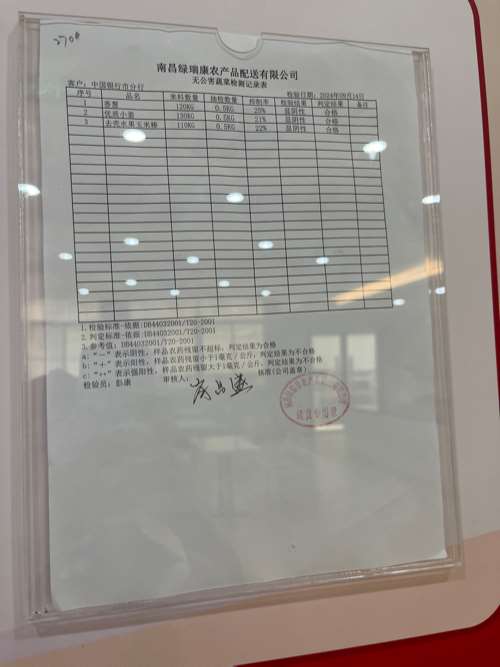 南昌绿瑞康农产品配送有限公司
无公害蔬菜检测记录表
客户：中国银行市分行 检验日期：2024年09月14日
序号 品名 来料数量 抽检数量 抑制率 检验结果 判定结果 备注
1 香葱 120KG 0.5KG 20% 显阴性 合格
2 优质小姜 130KG 0.5KG 21% 显阴性 合格
3 去壳水果玉米棒 110KG 0.5KG 22% 显阴性 合格
1.检验标准-依据:DB44032001/T20-2001
2.判定标准-依据:DB44032001/T20-2001
3.参考值: DB44032001/T20-2001
a: "－" 表示阴性，样品农药残留不超标，判定结果为合格
b: "＋" 表示阳性，样品农药残留小于1毫克／公斤，判定结果为不合格
c: "++" 表示强阳性，样品农药残留大于1毫克／公斤，判定结果为不合格
检验员：彭康 审核人： 核准(公司盖章)